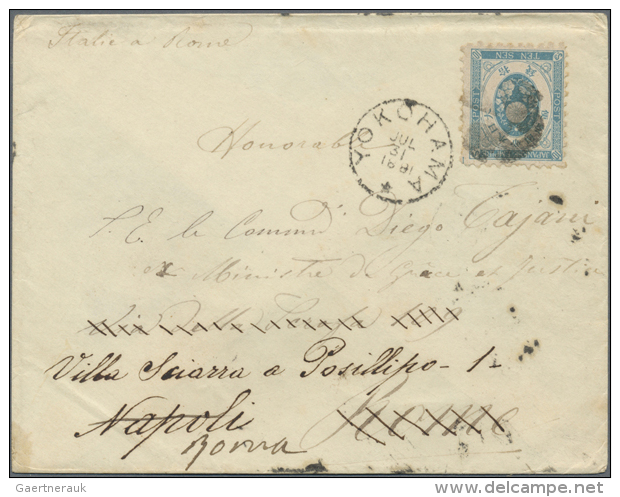 Italie a Rome
TEN SEN
YOKOHAMA
JUL
31
1881
Honorable
S. E. le Commr Diego Tajani
ex Ministre de Grace et Justice
Villa Sciarra a Posillipo - 1-
Napoli
Rome
Roma
Gaertnerauk
© DELCAMPE.NET